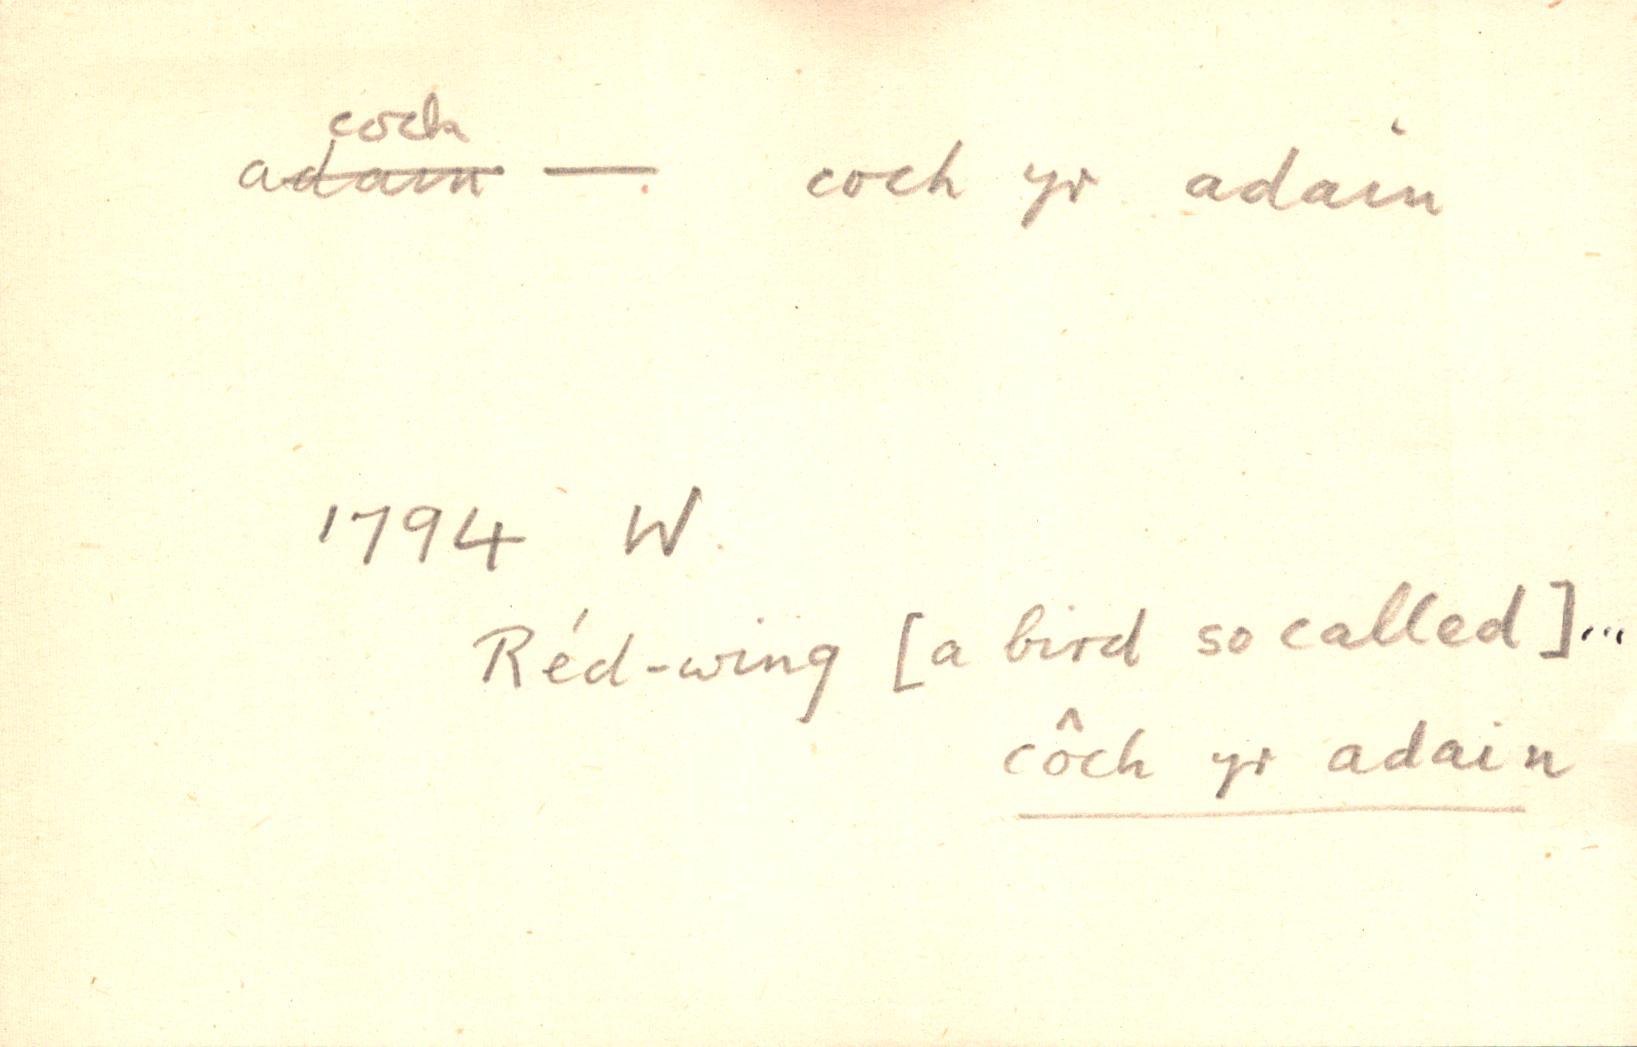 coch
adain — coch yr adain
1794 W
Réd-wing [a bird so called]...
côch yr adain